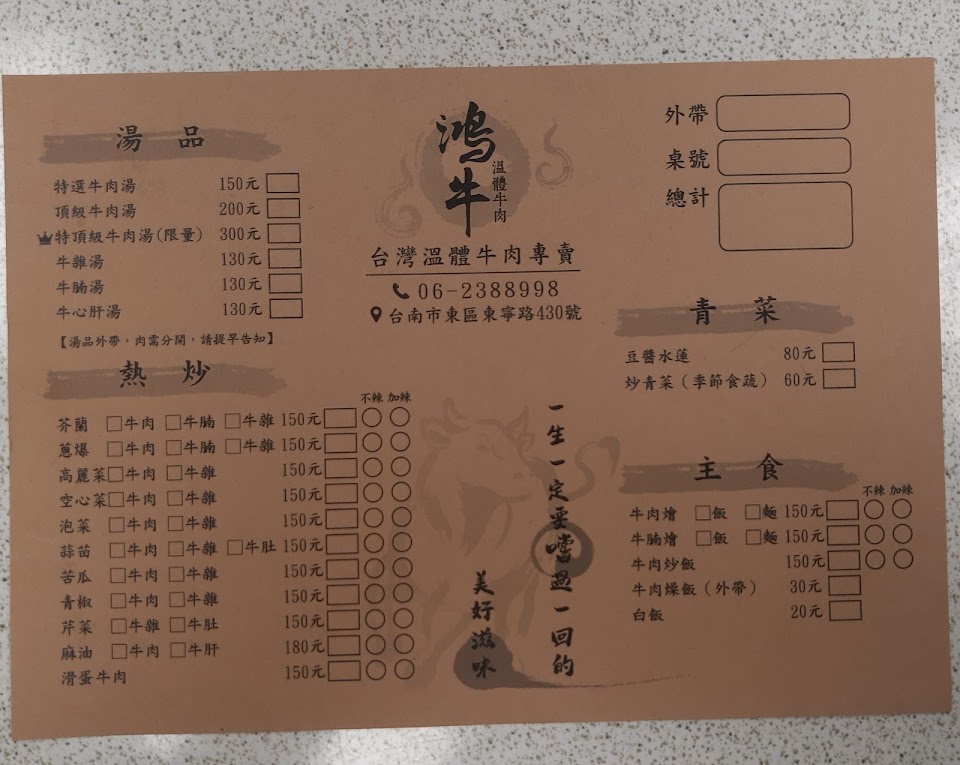 湯 品
特選牛肉湯 150元
頂級牛肉湯 200元
特頂級牛肉湯(限量) 300元
牛雜湯 130元
牛腩湯 130元
牛心肝湯 130元
【湯品外帶，肉需分開，請提早告知】
熱 炒
不辣 加辣
芥蘭 □牛肉 □牛腩 □牛雜 150元
蔥爆 □牛肉 □牛腩 □牛雜 150元
高麗菜□牛肉 □牛雜 150元
空心菜□牛肉 □牛雜 150元
泡菜 □牛肉 □牛雜 150元
蒜苗 □牛肉 □牛雜 □牛肚 150元
苦瓜 □牛肉 □牛雜 150元
青椒 □牛肉 □牛雜 150元
芹菜 □牛雜 □牛肚 150元
麻油 □牛肉 □牛肝 180元
滑蛋牛肉 150元
鴻牛
溫體牛肉
台灣溫體牛肉專賣
06-2388998
台南市東區東寧路430號
一生一定要嚐過一回的
美好滋味
外帶
桌號
總計
青 菜
豆醬水蓮 80元
炒青菜（季節食蔬） 60元
主 食
不辣 加辣
牛肉燴 □飯 □麵 150元
牛腩燴 □飯 □麵 150元
牛肉炒飯 150元
牛肉燥飯（外帶） 30元
白飯 20元